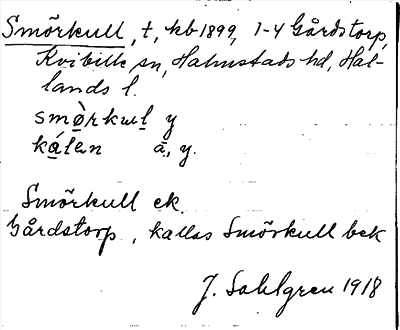 Smörkull, t, kb 1899, 1-4 Gårdstorp,
Kvibille sn, Halmstads hd, Hal-
lands l.
smö̀rkuḷ y
kálen ä., y.
Smörkull ek.
Gårdstorp, kallas Smörkull bek
J. Sahlgren 1918